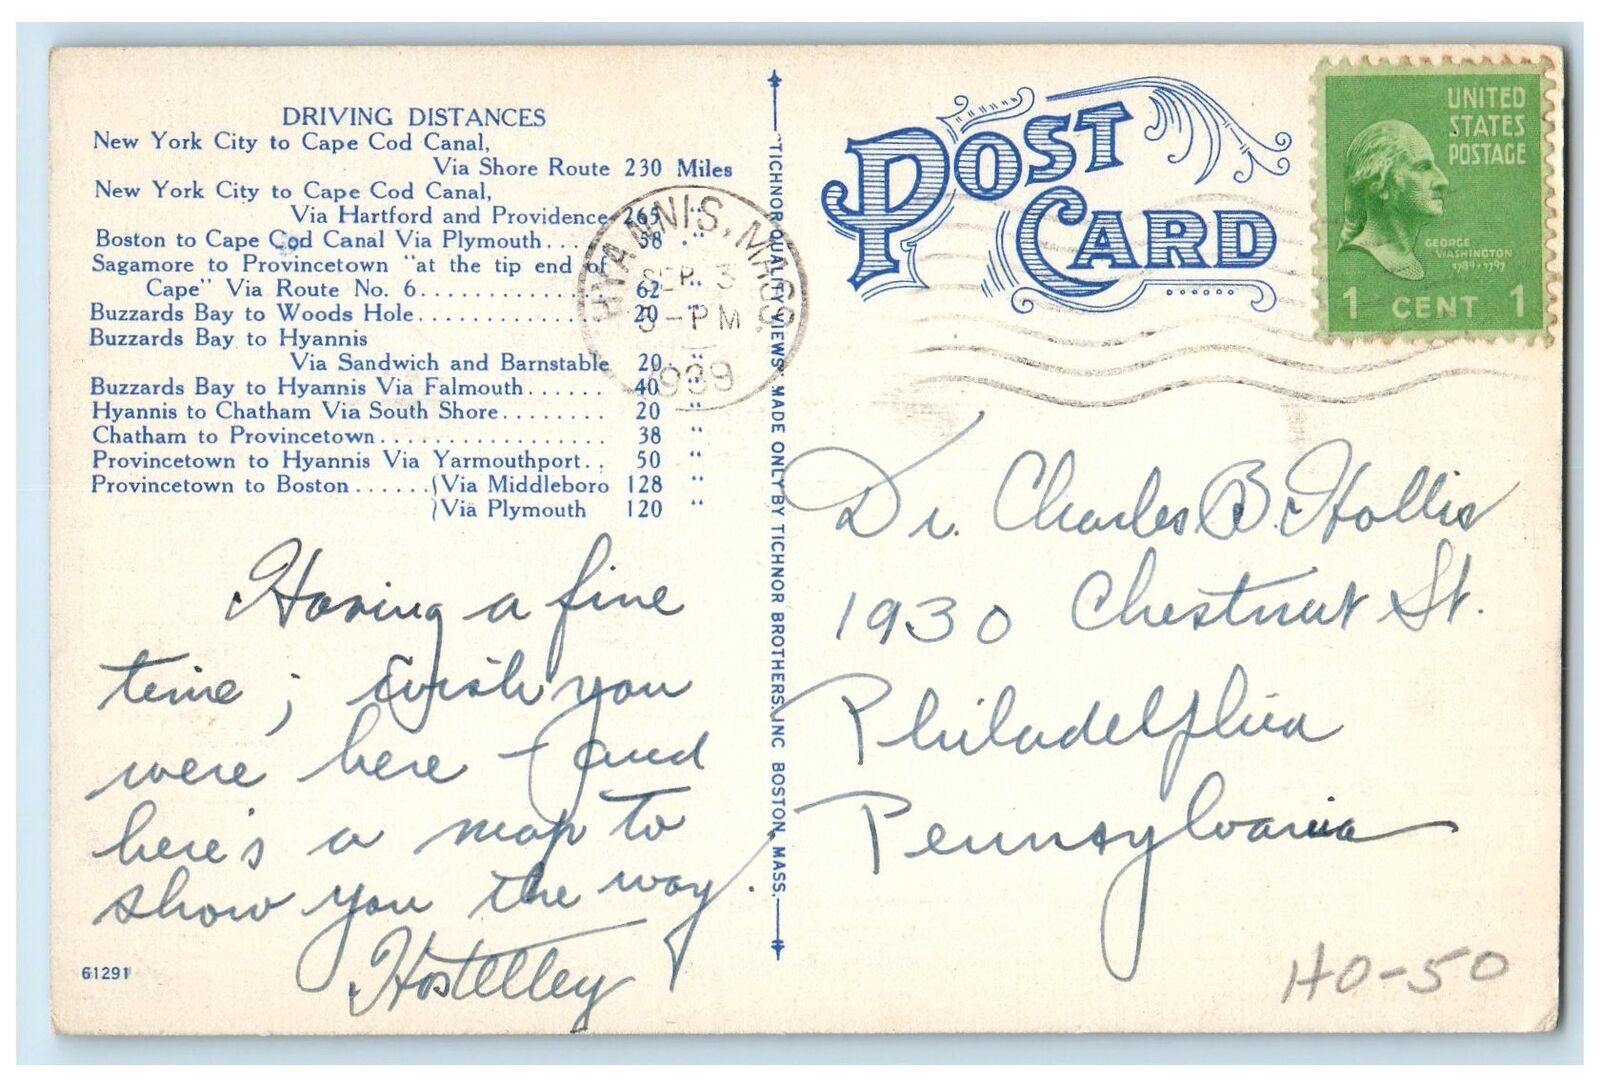 DRIVING DISTANCES
New York City to Cape Cod Canal,
Via Shore Route 230 Miles
New York City to Cape Cod Canal,
Via Hartford and Providence 265 "
Boston to Cape Cod Canal Via Plymouth.... 58 "
Sagamore to Provincetown "at the tip end of
Cape" Via Route No. 6............. 62 "
Buzzards Bay to Woods Hole............. 20 "
Buzzards Bay to Hyannis
Via Sandwich and Barnstable 20 "
Buzzards Bay to Hyannis Via Falmouth...... 40 "
Hyannis to Chatham Via South Shore........ 20 "
Chatham to Provincetown.................. 38 "
Provincetown to Hyannis Via Yarmouthport.. 50 "
Provincetown to Boston......{Via Middleboro 128 "
}Via Plymouth 120 "
HYANNIS, MASS.
SEP 3
-PM
1939
Having a fine
time; wish you
were here - and
here's a map to
show you the way.
Hostelley
61291
"TICHNOR QUALITY VIEWS" MADE ONLY BY TICHNOR BROTHERS. INC BOSTON. MASS.
POST CARD
UNITED
STATES
POSTAGE
GEORGE
WASHINGTON
1789-1797
1 CENT 1
Dr. Charles B. Hollis
1930 Chestnut St.
Philadelphia
Pennsylvania
HO-50